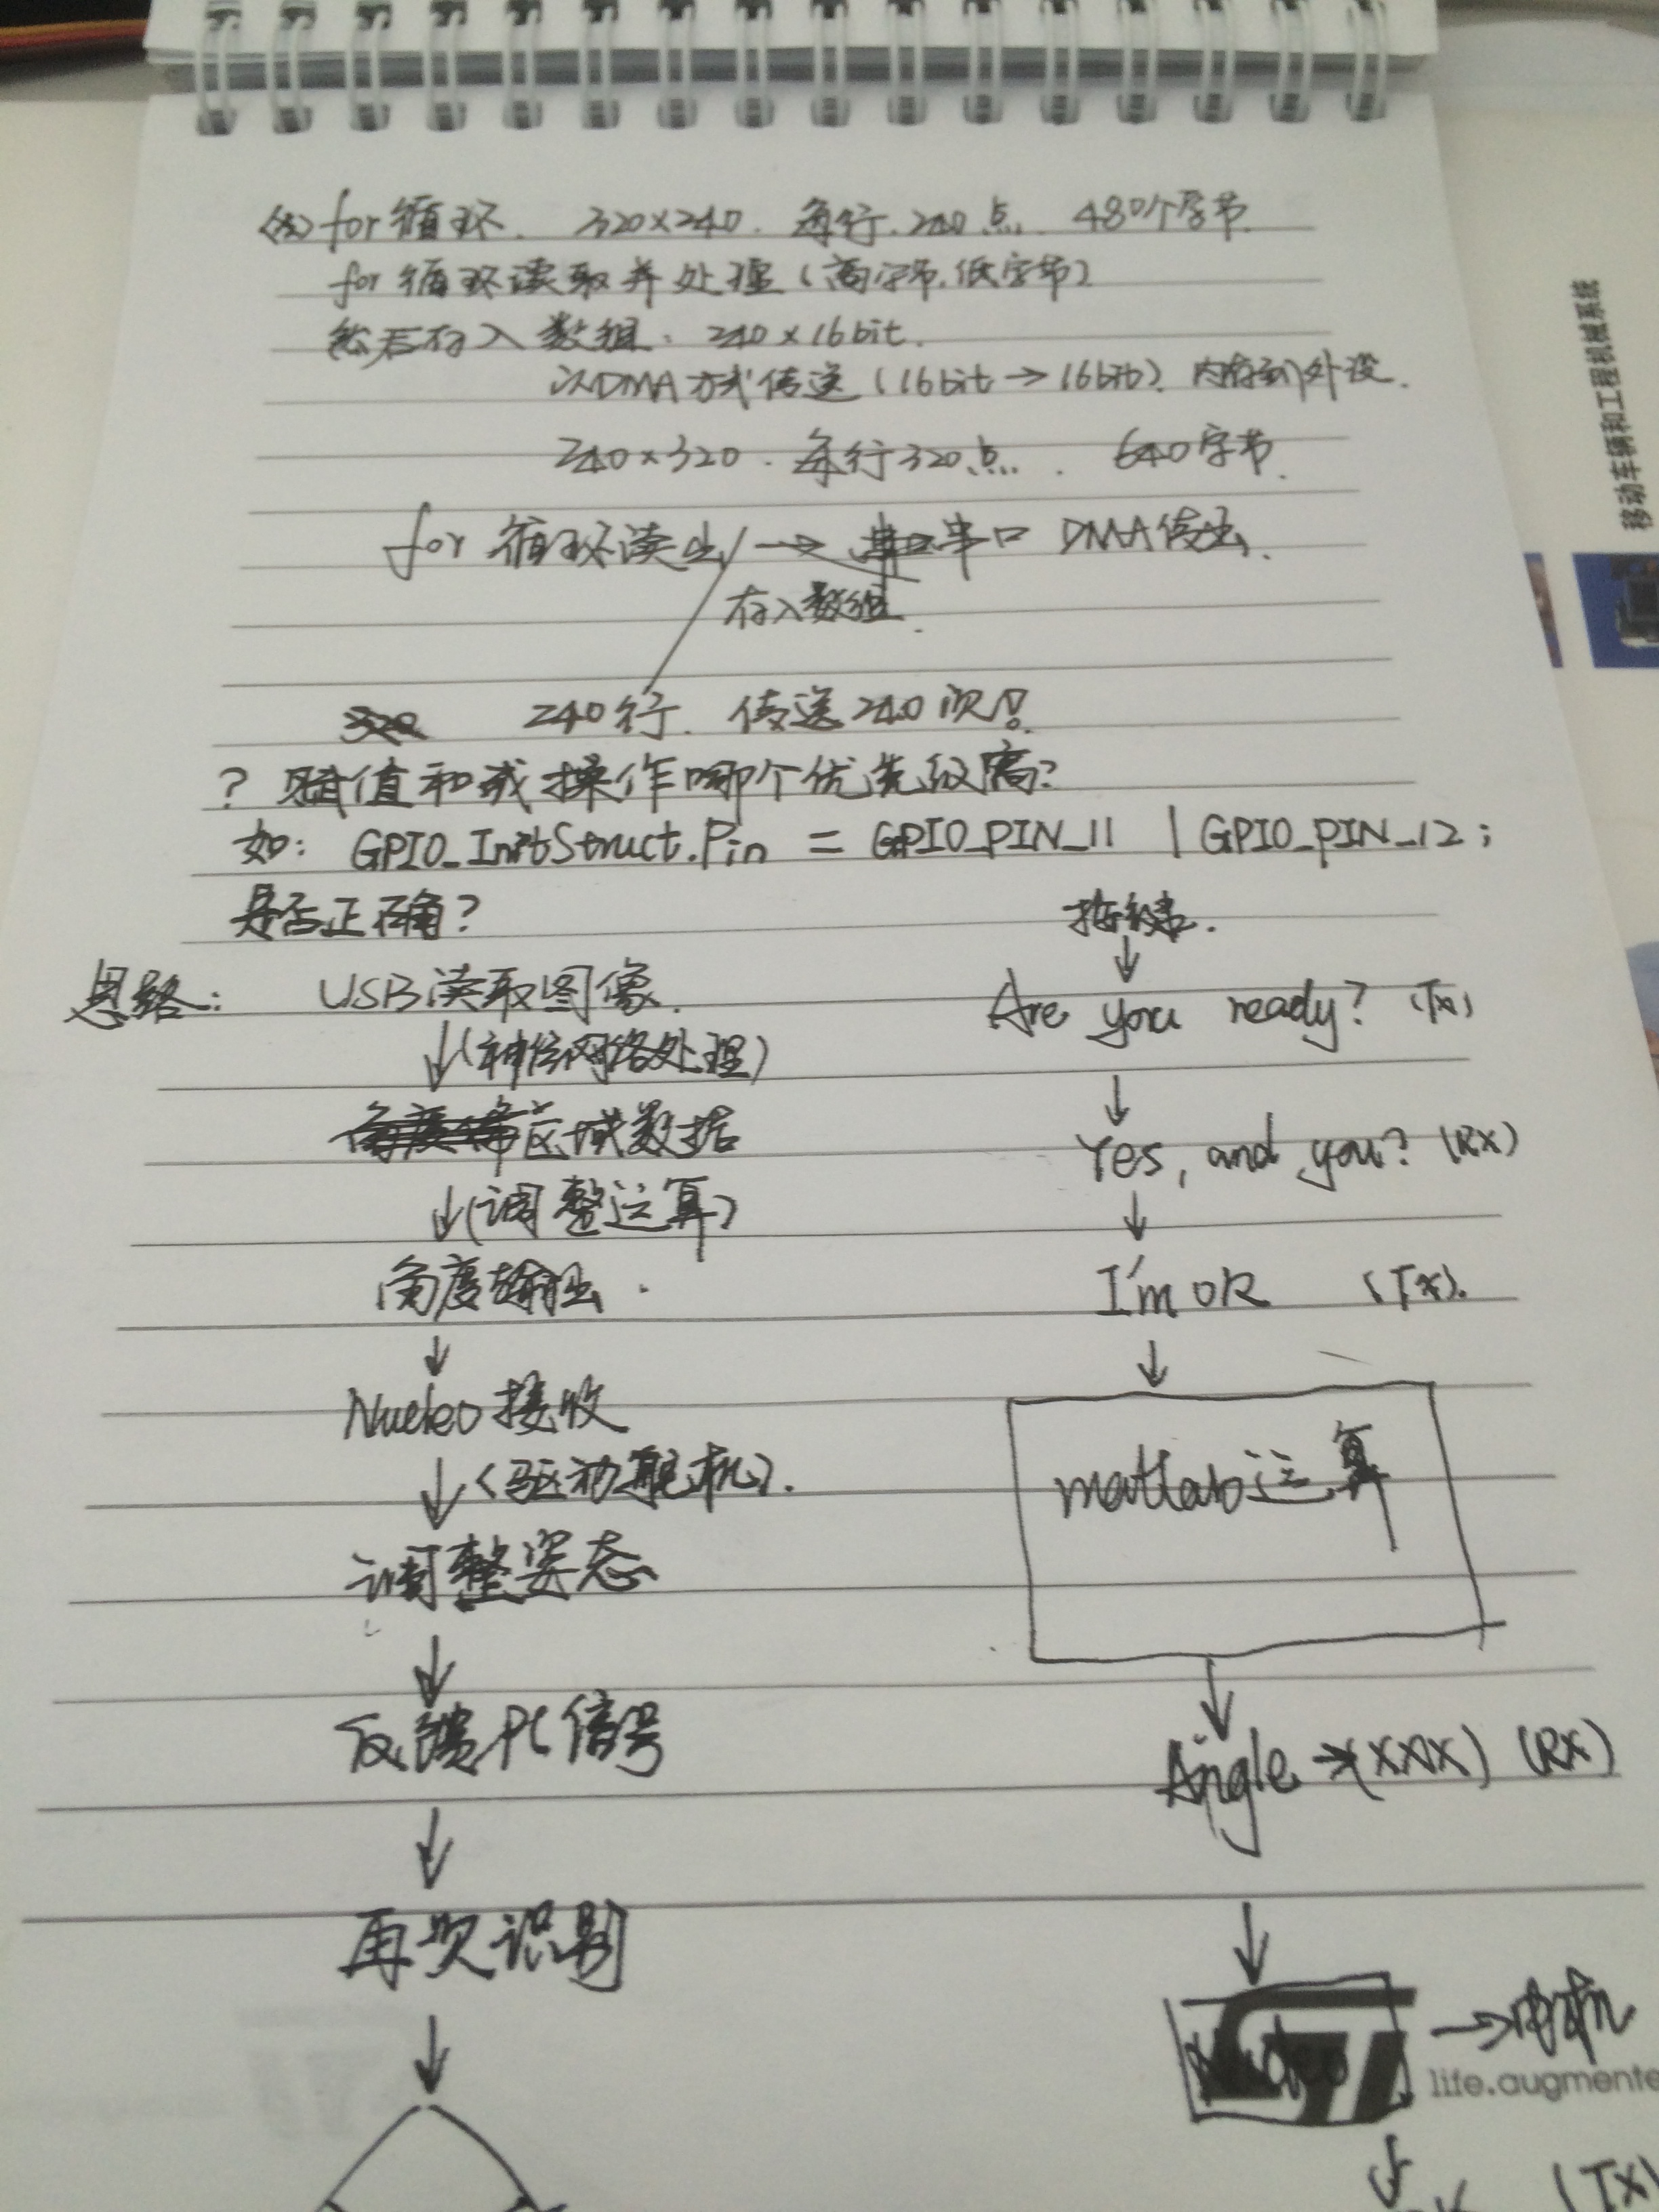 for循环. 320×240. 每行.240点. 480个字节.
for循环读取并处理(高字节.低字节)
然后存入数组: 240×16bit.
以DMA方式传送(16bit→16bit) 内存到外设.
240×320. 每行320点. 640字节.
for循环读出→串口 DMA传出.
存入数组.
240行. 传送240次!
? 赋值和或操作哪个优先级高?
如: GPIO_InitStruct.Pin = GPIO_PIN_11 | GPIO_PIN_12;
是否正确?
思路: USB读取图像.
↓(神经网络处理)
区域数据
↓(调整运算)
角度输出.
↓
Nucleo接收
↓(驱动舵机).
调整姿态
↓
反馈PC信号
↓
再次识别
↓
按键.
↓
Are you ready? (Tx)
↓
Yes, and you? (Rx)
↓
I'm OK (Tx).
↓
matlab运算
↓
Angle→(XXX) (RX)
↓
Nucleo →
life.augmente
↓
(Tx)
移动车辆和工程机械系统